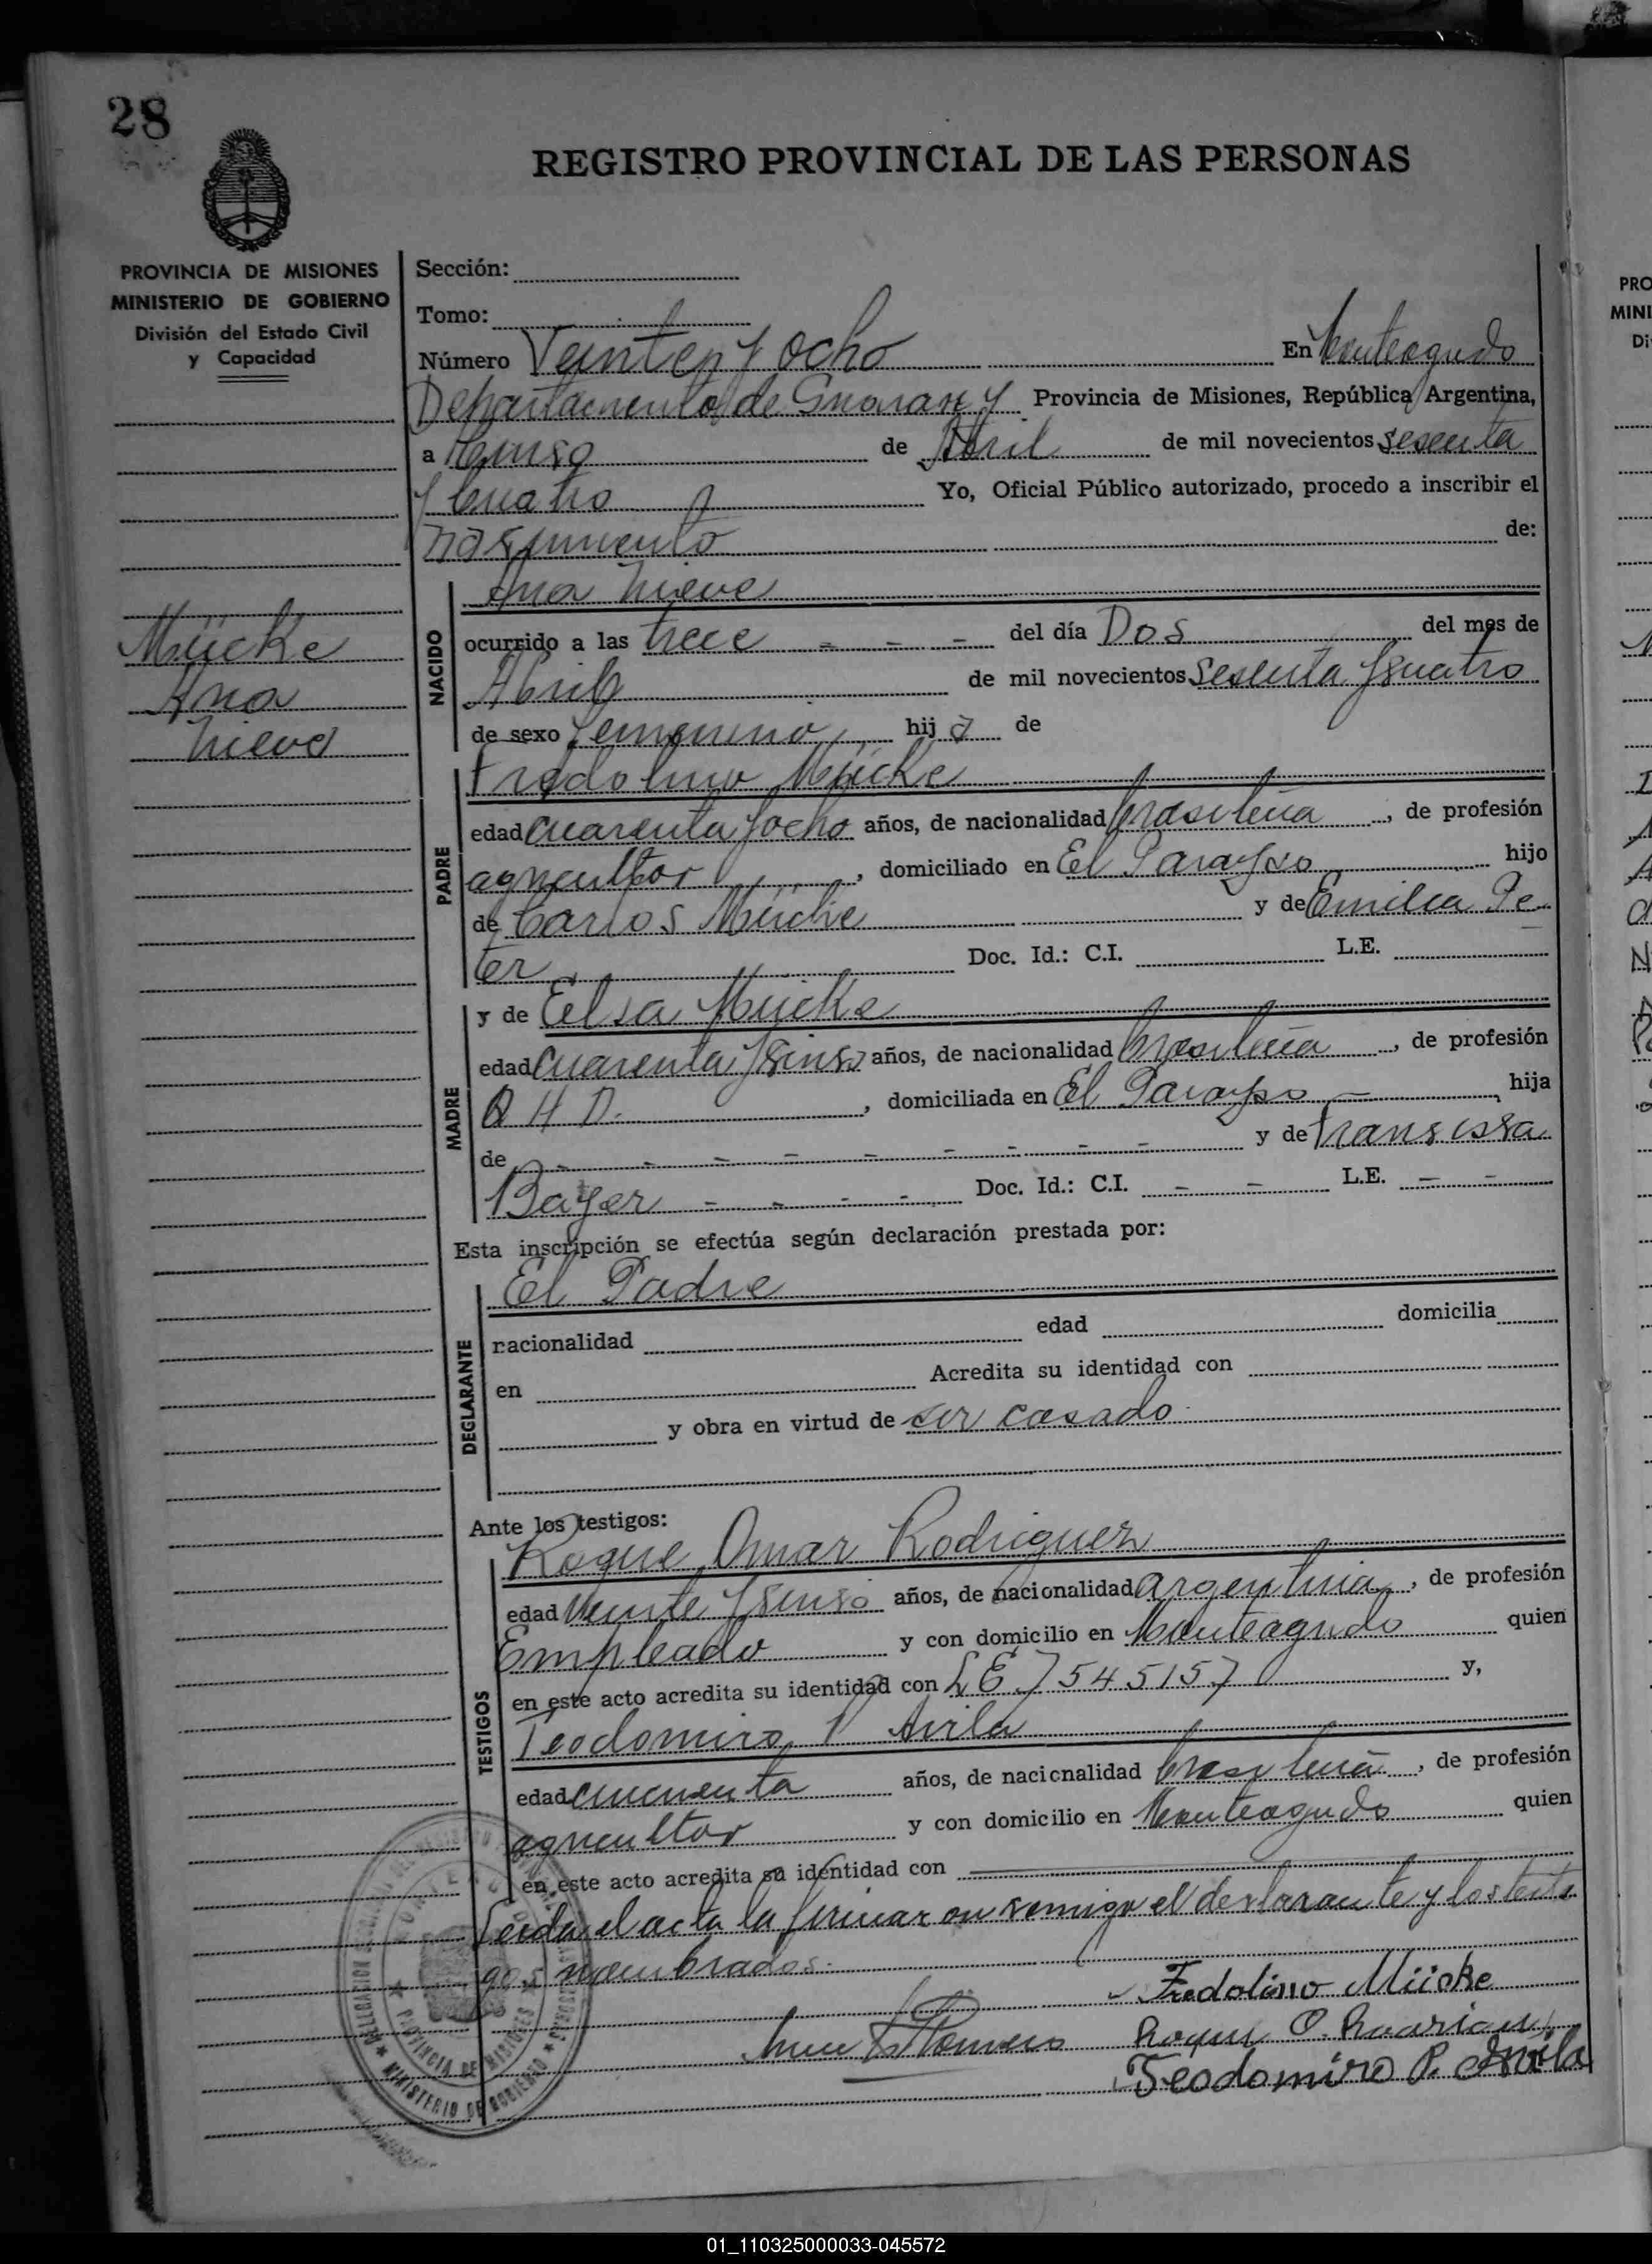 28
REGISTRO PROVINCIAL DE LAS PERSONAS
PROVINCIA DE MISIONES
MINISTERIO DE GOBIERNO
División del Estado Civil
y Capacidad
Sección:
Tomo:
Número Veinte y ocho En Monteagudo
Departamento de Guarany Provincia de Misiones, República Argentina,
a de Abril de mil novecientos sesenta
y Cuatro Yo, Oficial Público autorizado, procedo a inscribir el
nasimiento de:
Mücke
Ana
Nieve
NACIDO
Ana Nieve
ocurrido a las trece - - - del día Dos del mes de
Abril de mil novecientos Sesenta y suatro
de sexo Femenino hija de
PADRE
Fredolino Mücke
edad cuarenta y ocho años, de nacionalidad brasileña, de profesión
agricultor, domiciliado en El Parayso hijo
de Carlos Mücke y de Emilia Pe-
ter Doc. Id.: C.I. L.E.
MADRE
y de Elsa Mücke
edad cuarenta y sinso años, de nacionalidad brasileña, de profesión
Q H D., domiciliada en El Parayso -, hija
de - - - - - - - - - y de Fransissa
Bayer - - - - Doc. Id.: C.I. - - L.E. - -
Esta inscripción se efectúa según declaración prestada por:
DEGLARANTE
El Padre
racionalidad edad domicilia
en Acredita su identidad con
y obra en virtud de ser casado
Ante los testigos:
TESTIGOS
Roque Omar Rodriguez
edad Veinte y sinso años, de nacionalidad argentina, de profesión
Empleado y con domicilio en Monteagudo quien
en este acto acredita su identidad con L E 7545157 y,
Teodomiro P Avila
edad cincuenta años, de nacicnalidad brasileña, de profesión
agricultor y con domicilio en Monteagudo quien
en este acto acredita su identidad con
Leida el acta la firmaron comigo el declarante y los testi
gos nombrados.
Fredolino Mücke
Roque O.
Teodomiro P. Avila
PROVINCIA DE MISIONES
MINISTERIO DE GOBIERNO
PRO
MINI
Di
01_110325000033-045572